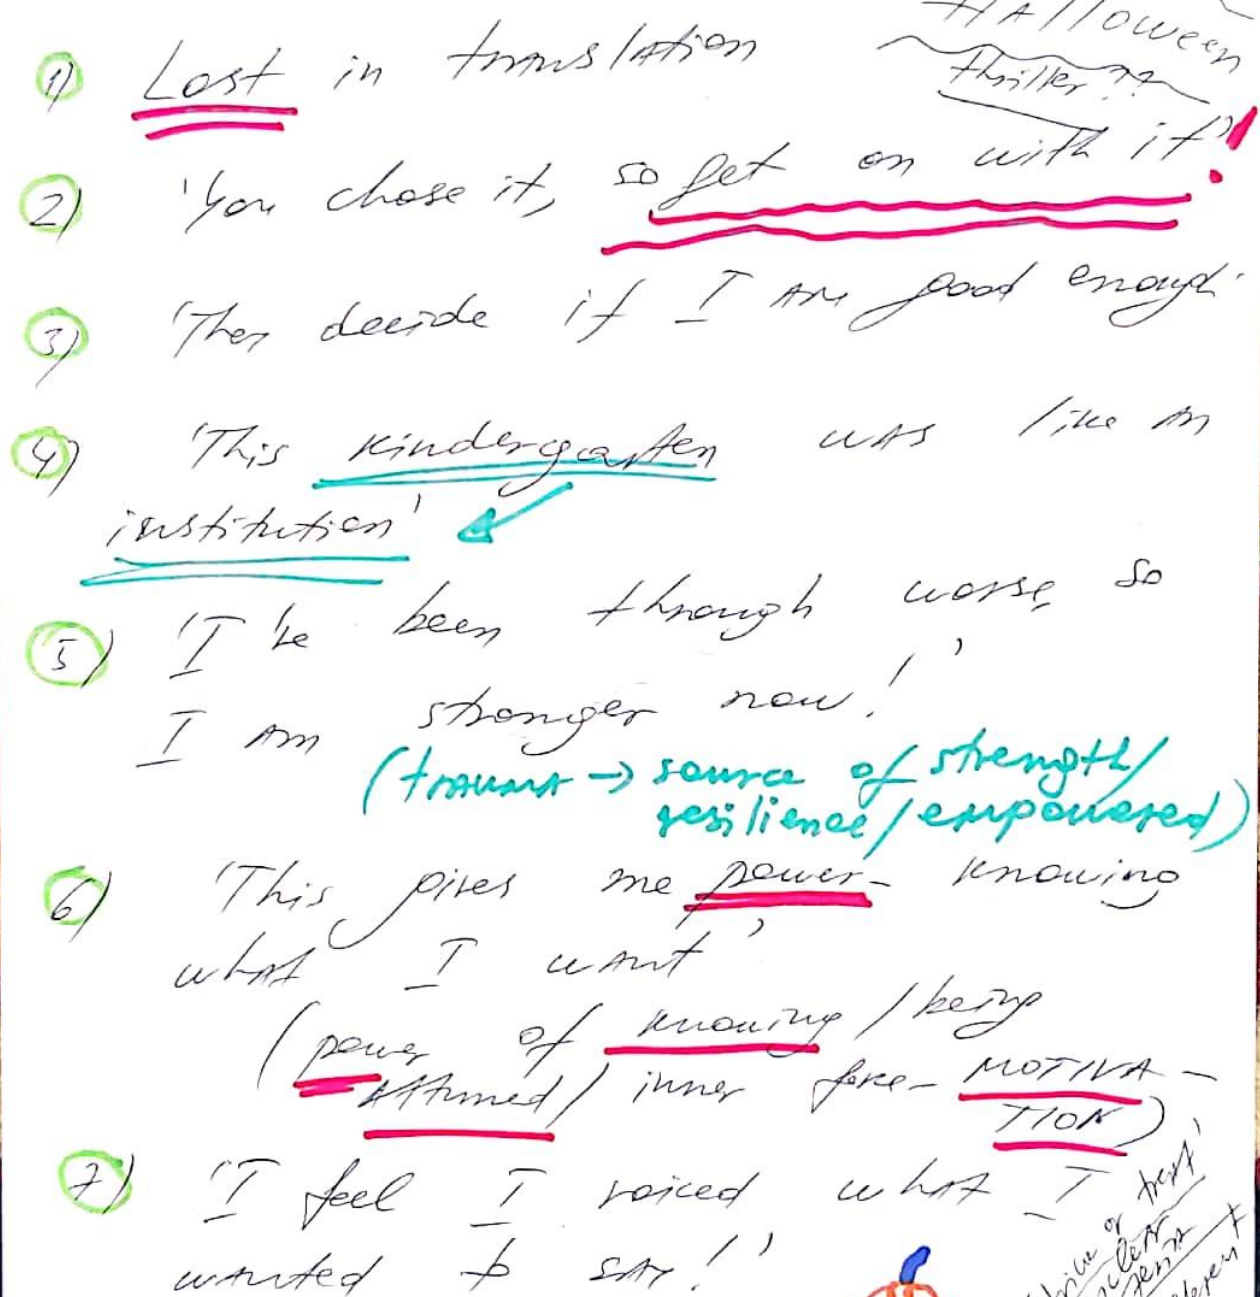 HAlloween
thriller ??
1) Lost in translation
2) 'You chose it, so get on with it'!
3) 'They decide if I am good enough'
4) 'This kindergarten was like an
institution'
5) 'I've been through worse, so
I am stronger now!'
(trauma → source of strength/
resilience/empowered)
6) 'This gives me power - knowing
what I want'
(power of knowing / being
Attuned / inner force - MOTIVA-
TION)
7) 'I feel I voiced what I
wanted to say!'
or treat'